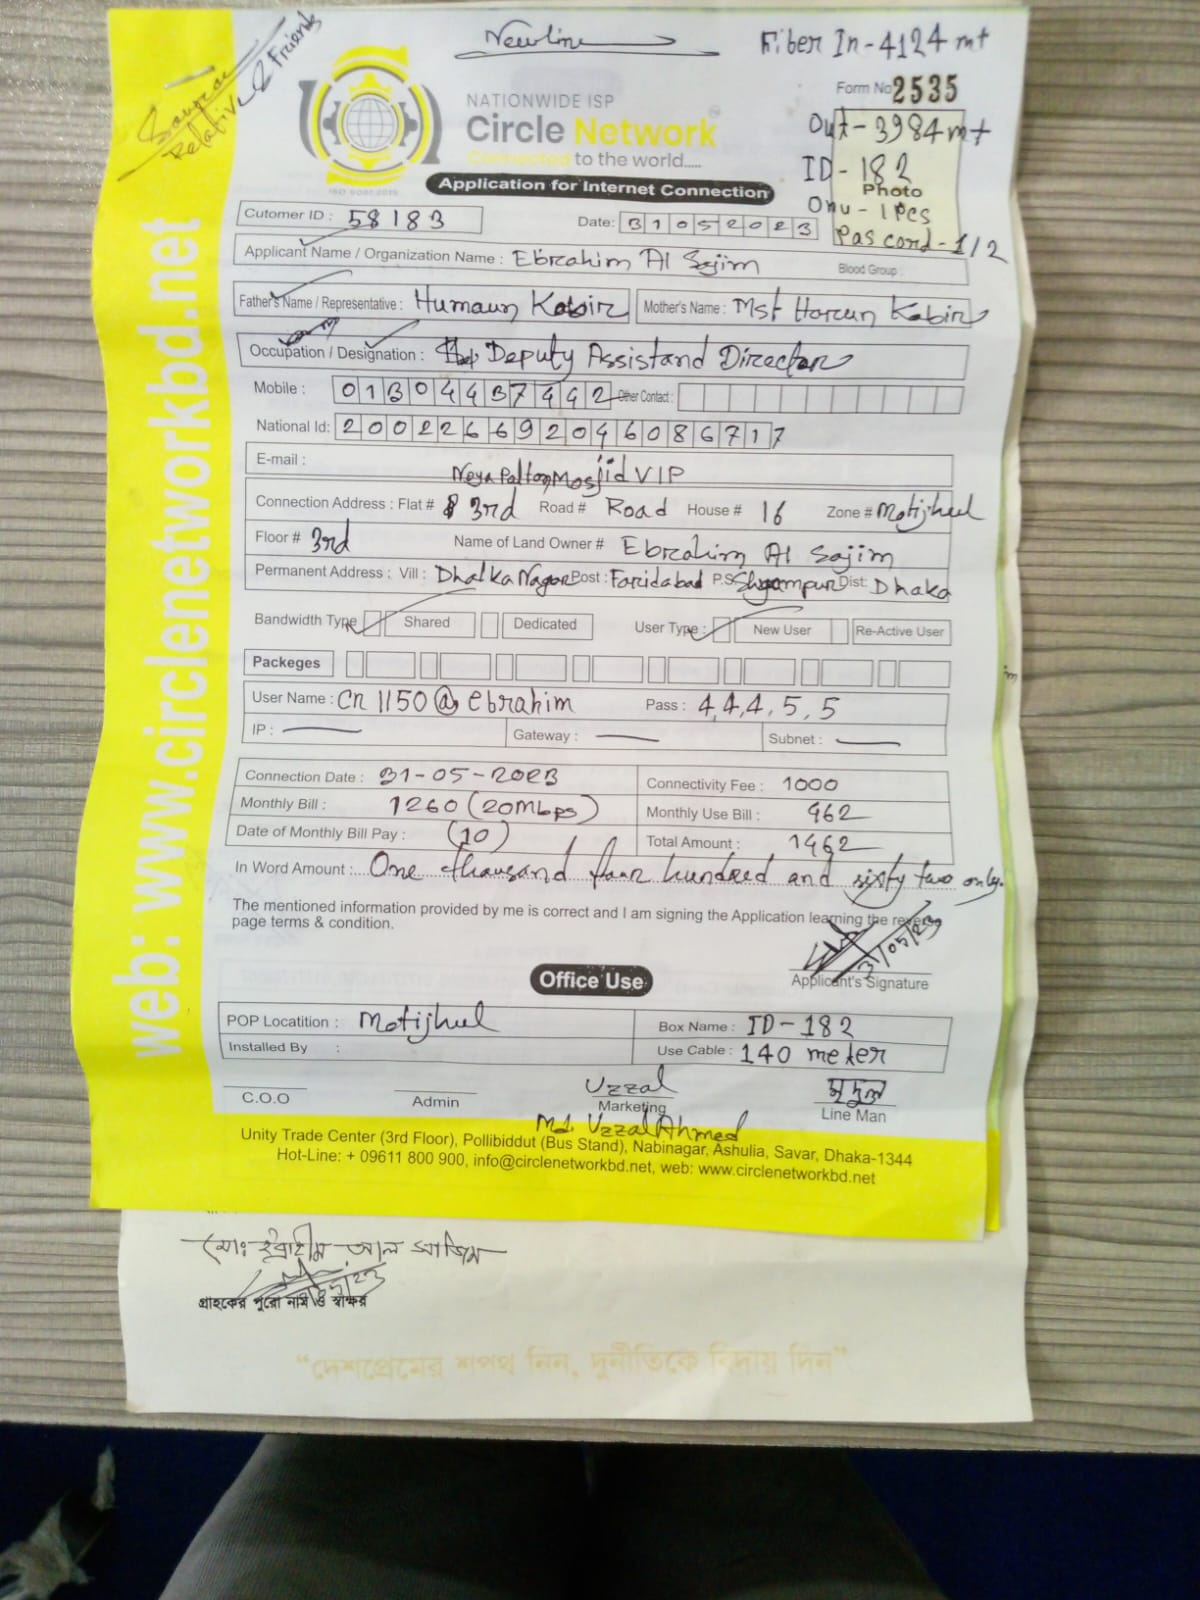 Newline
Fiber In-4124 mt
Relative & Friends
Form No 2535
NATIONWIDE ISP
Circle Network
Connected to the world.....
Out-3984mt
ID-182
Photo
Onu-1Pcs
Pas cord-1/2
ISO 9001:2015
Application for Internet Connection
Cutomer ID : 58183
Date: 31052023
Applicant Name / Organization Name : Ebrahim Al Sajim
Blood Group :
Father's Name / Representative : Humaun Kabir
Mother's Name : Mst Harun Kabir
Occupation / Designation : Deputy Assistand Director
Mobile : 01304437442
Other Contact :
National Id: 200226692046086717
E-mail :
Neya Palton Mosjid VIP
Connection Address : Flat # 3rd Road # Road House # 16 Zone # Motijheel
Floor # 3rd Name of Land Owner # Ebrahim Al Sajim
Permanent Address : Vill : Dhalka Nagar Post : Faridabad P.S: Shyampur Dist: Dhaka
Bandwidth Type Shared Dedicated User Type : New User Re-Active User
Packeges
User Name : cn1150@ebrahim Pass : 4,4,4,5,5
IP : Gateway : Subnet :
Connection Date : 31-05-2023 Connectivity Fee : 1000
Monthly Bill : 1260 (20Mbps) Monthly Use Bill : 462
Date of Monthly Bill Pay : (10) Total Amount : 1462
In Word Amount : One thausand four hundred and sixty two only.
The mentioned information provided by me is correct and I am signing the Application learning the reverse
page terms & condition.
31/05/23
Applicant's Signature
Office Use
POP Locatition : Motijheel Box Name : ID-182
Installed By : Use Cable : 140 meter
C.O.O Admin Uzzal Marketing মৃদুল Line Man
Md. Uzzal Ahmed
Unity Trade Center (3rd Floor), Pollibiddut (Bus Stand), Nabinagar, Ashulia, Savar, Dhaka-1344
Hot-Line: + 09611 800 900, info@circlenetworkbd.net, web: www.circlenetworkbd.net
web: www.circlenetworkbd.net
মোঃ ইব্রাহীম আল সাজিম
গ্রাহকের পুরো নাম ও স্বাক্ষর
“দেশপ্রেমের শপথ নিন, দুর্নীতিকে বিদায় দিন”